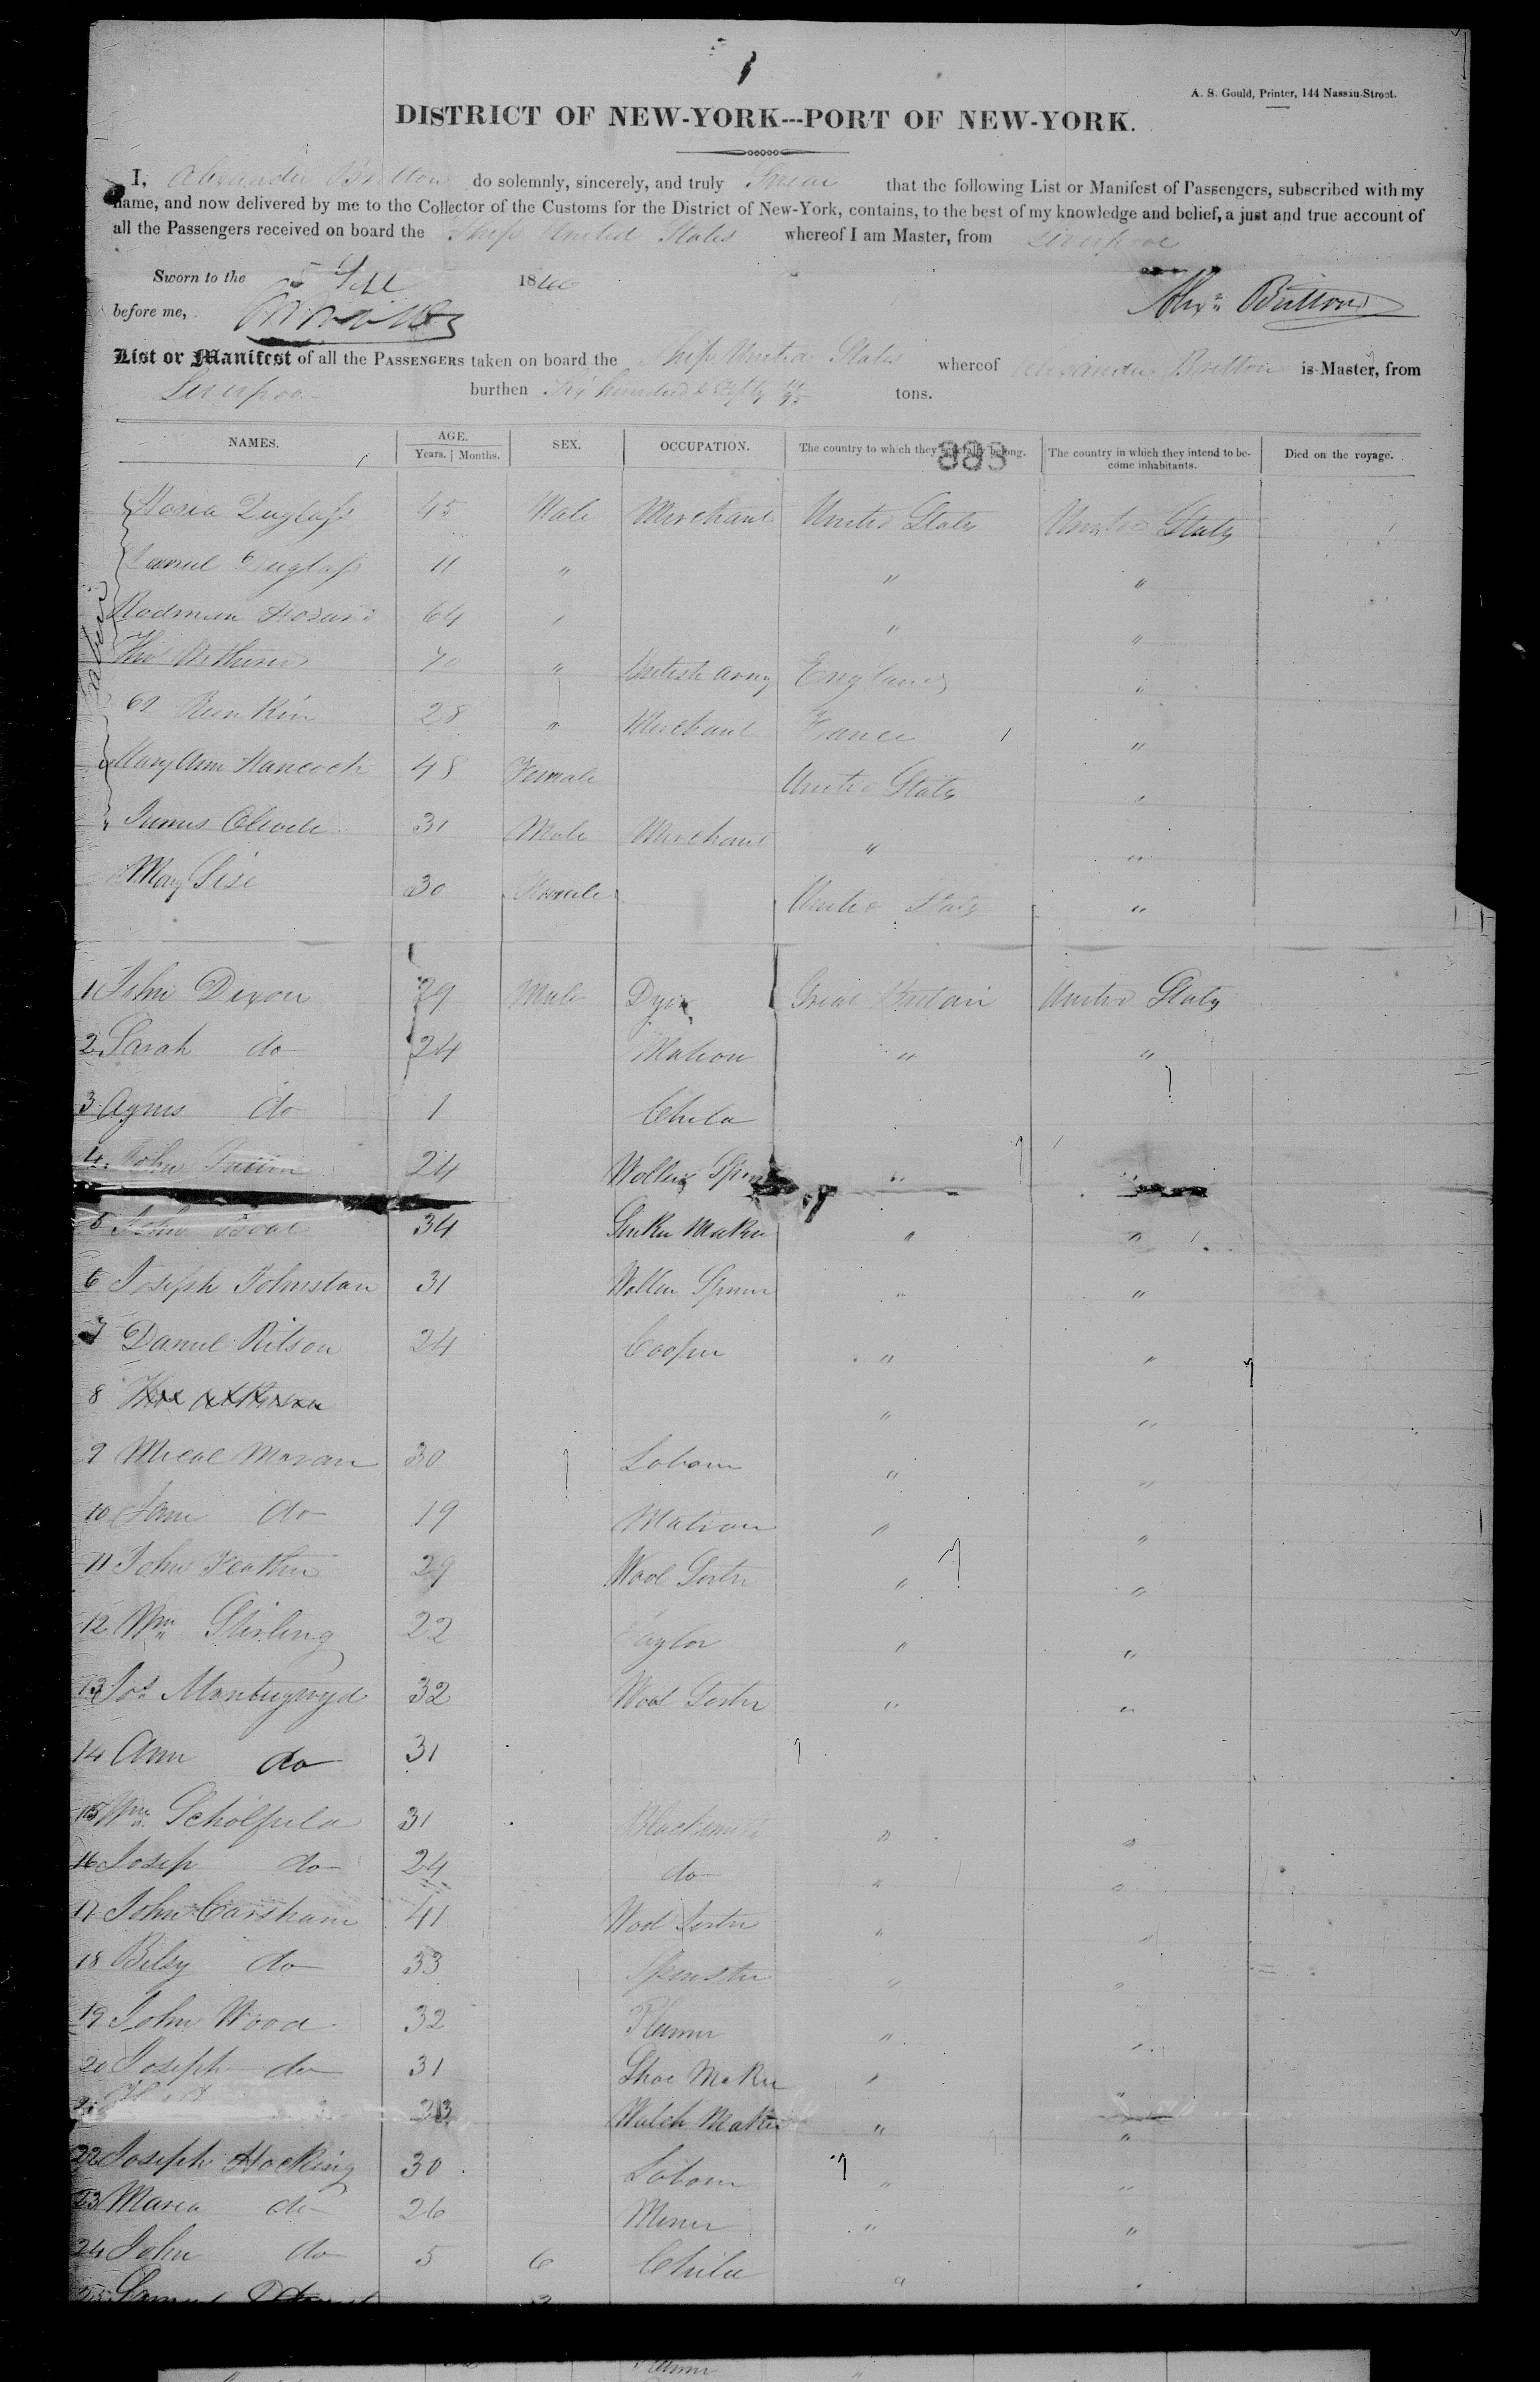 A. S. Gould, Printer, 144 Nassau-Street.
DISTRICT OF NEW-YORK---PORT OF NEW-YORK.
I, Alexander Britton do solemnly, sincerely, and truly Swear that the following List or Manifest of Passengers, subscribed with my
name, and now delivered by me to the Collector of the Customs for the District of New-York, contains, to the best of my knowledge and belief, a just and true account of
all the Passengers received on board the Ship United States whereof I am Master, from Liverpool
Sworn to the 5 1840
before me, Alexr Britton
List or Manifest of all the PASSENGERS taken on board the Ship United States whereof Alexander Britton is Master, from
Liverpool burthen Six hundred & Fifty tons.
NAMES. AGE. SEX. OCCUPATION. The country to which they severally belong. The country in which they intend to become inhabitants. Died on the voyage.
Years. Months.
883
Hosea Duglass 45 Male Merchant United States United States
Samuel Duglass 11 " " "
Rodman 64 " " "
Tho 70 " British army England "
28 " Merchant France "
Mary Ann Hancock 48 Female United States "
James 31 Male Merchant " "
Mary 30 Female United States "
1 John Dixon 29 Male Dyer Great Britain United States
2 Sarah do 24 Matron " "
3 Agnes do 1 Child
4 John 24 Wollen " "
5 John 34 Maker " "
6 Joseph Johnstan 31 Wollen Spiner " "
7 Daniel Ritson 24 Cooper " "
8 " "
9 Mical Moran 30 Laborer " "
10 Jane do 19 Matron " "
11 John Feather 29 Wool Sorter " "
12 Wm Stirling 22 Taylor " "
13 Jos 32 Wool Sorter " "
14 Ann do 31
15 Wm Scholfield 31 Blacksmith " "
16 Josep do 24 do " "
17 John Carsham 41 Wool Sorter " "
18 Betsy do 33 Spinster " "
19 John Wood 32 " "
20 Joseph do 31 Shoe Maker " "
21 33 Watch Maker " "
22 Joseph Hocking 30 Laborer " "
23 Maria do 26 Miner " "
24 John do 5 6 Child "
25 Samuel